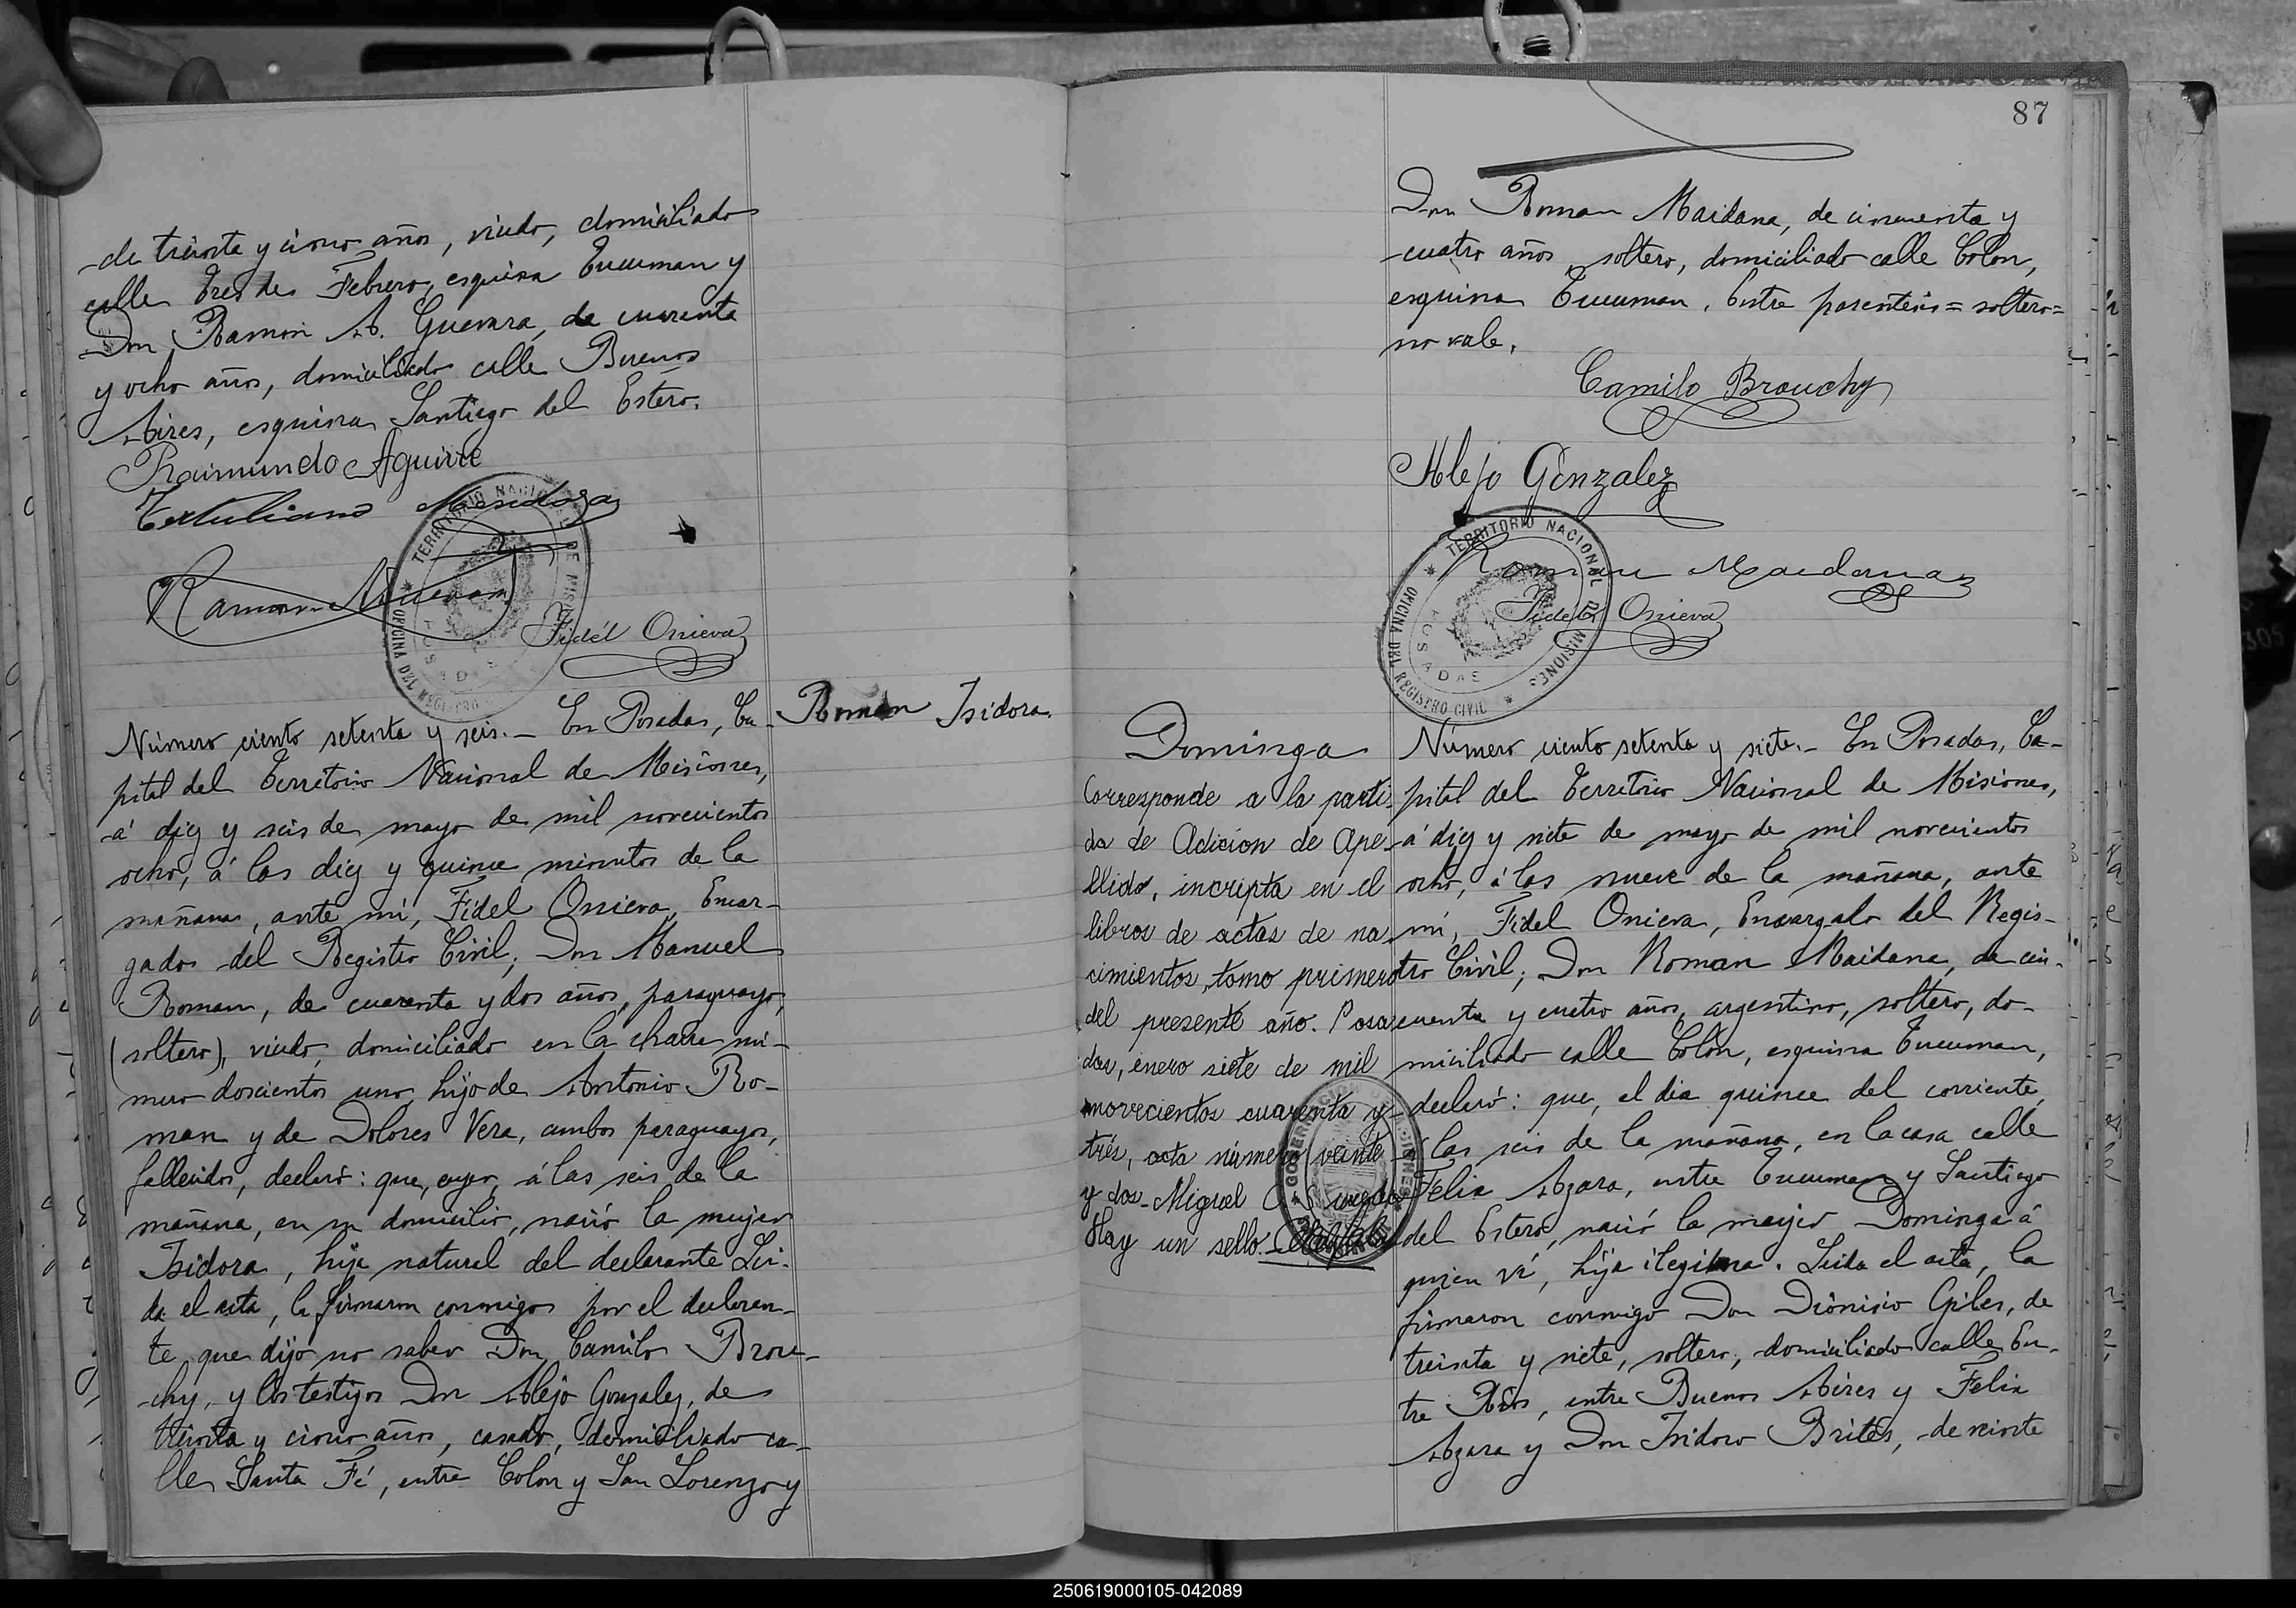 de treinta y cinco años, viudo, domiciliado
calle Tres de Febrero, esquina Tucuman y
Don Ramon A. Guevara, de cuarenta
y ocho años, domiciliado calle Buenos
Aires, esquina Santiago del Estero.
Raimundo Aguirre
Tertuliano Mendoza
Ramon A Guevara
Fidél Onieva
TERRITORIO NACIONAL DE MISIONES
OFICINA DEL REGISTRO CIVIL
POSADAS
Roman Isidora.
Número ciento setenta y seis.- En Posadas, Ca-
pital del Territorio Nacional de Misiones,
á diez y seis de mayo de mil novecientos
ocho, á las diez y quince minutos de la
mañana, ante mi, Fidel Onieva, Encar-
gado del Registro Civil; Don Manuel
Roman, de cuarenta y dos años, paraguayo,
(soltero), viudo, domiciliado en la chacra nú-
mero doscientos uno, hijo de Antonio Ro-
man y de Dolores Vera, ambos paraguayos,
fallecidos, declaró: que, ayer, á las seis de la
mañana, en su domicilio, nació la mujer
Isidora, hija natural del declarante. Lei-
da el acta, la firmaron conmigo por el declaran-
te que dijo no saber Don Camilo Brou-
chy, y los testigos Don Alejo Gonzalez, de
treinta y cinco años, casado, domiciliado ca-
lle Santa Fé, entre Colon y San Lorenzo y
87
Don Roman Maidana, de cincuenta y
cuatro años, soltero, domiciliado calle Colon,
esquina Tucuman. Entre parentesis = soltero =
no vale.
Camilo Brouchy
Alejo Gonzalez
Roman Maidana
Fidél Onieva
TERRITORIO NACIONAL DE MISIONES
OFICINA DEL REGISTRO CIVIL
POSADAS
Dominga
Corresponde a la parti-
da de Adicion de Ape-
llido, incripta en el
libros de actas de na-
cimientos, tomo primero
del presente año. Posa
das, enero siete de mil
novecientos cuarenta y
trés, acta número veinte
y dos. Miguel
Hay un sello.
Número ciento setenta y siete.- En Posadas, Ca-
pital del Territorio Nacional de Misiones,
á diez y siete de mayo de mil novecientos
ocho, á las nueve de la mañana, ante
mi, Fidel Onieva, Encargado del Regis-
tro Civil; Don Roman Maidana, de cin-
cuenta y cuatro años, argentino, soltero, do-
miciliado calle Colon, esquina Tucuman,
declaró: que, el dia quince del corriente,
á las seis de la mañana, en la casa calle
Felix Azara, entre Tucuman y Santiago
del Estero, nació la mujer Dominga á
quien ví, hija ilegitima. Leida el acta, la
firmaron conmigo Don Dionisio Giles, de
treinta y siete, soltero, domiciliado calle En-
tre Rios, entre Buenos Aires y Felix
Azara y Don Isidoro Brites, de veinte
250619000105-042089